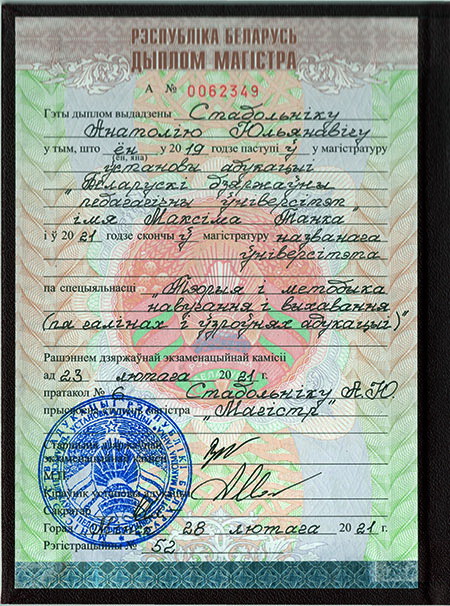 РЭСПУБЛІКА БЕЛАРУСЬ
ДЫПЛОМ МАГІСТРА
А № 0062349
Гэты дыплом выдадзены Стабольніку
Анатолію Юльянавічу
у тым, што ён у 2019 годзе паступіў у магістратуру
(ён, яна)
ўстановы адукацыі
„Беларускі дзяржаўны
педагагічны ўніверсітэт
імя Максіма Танка"
і ў 2021 годзе скончыў магістратуру названага
ўніверсітэта
па спецыяльнасці „Тэорыя і методыка
навучання і выхавання
(па галінах і ўзроўнях адукацыі)"
Рашэннем дзяржаўнай экзаменацыйнай камісіі
ад 23 лютага 2021 г.
пратакол № Стабольніку А.Ю.
магістра „Магістр"
экзаменацыйнай камісіі
Кіраўнік установы адукацыі
Сакратар
Горад 28 лютага 2021 г.
Рэгістрацыйны № 52